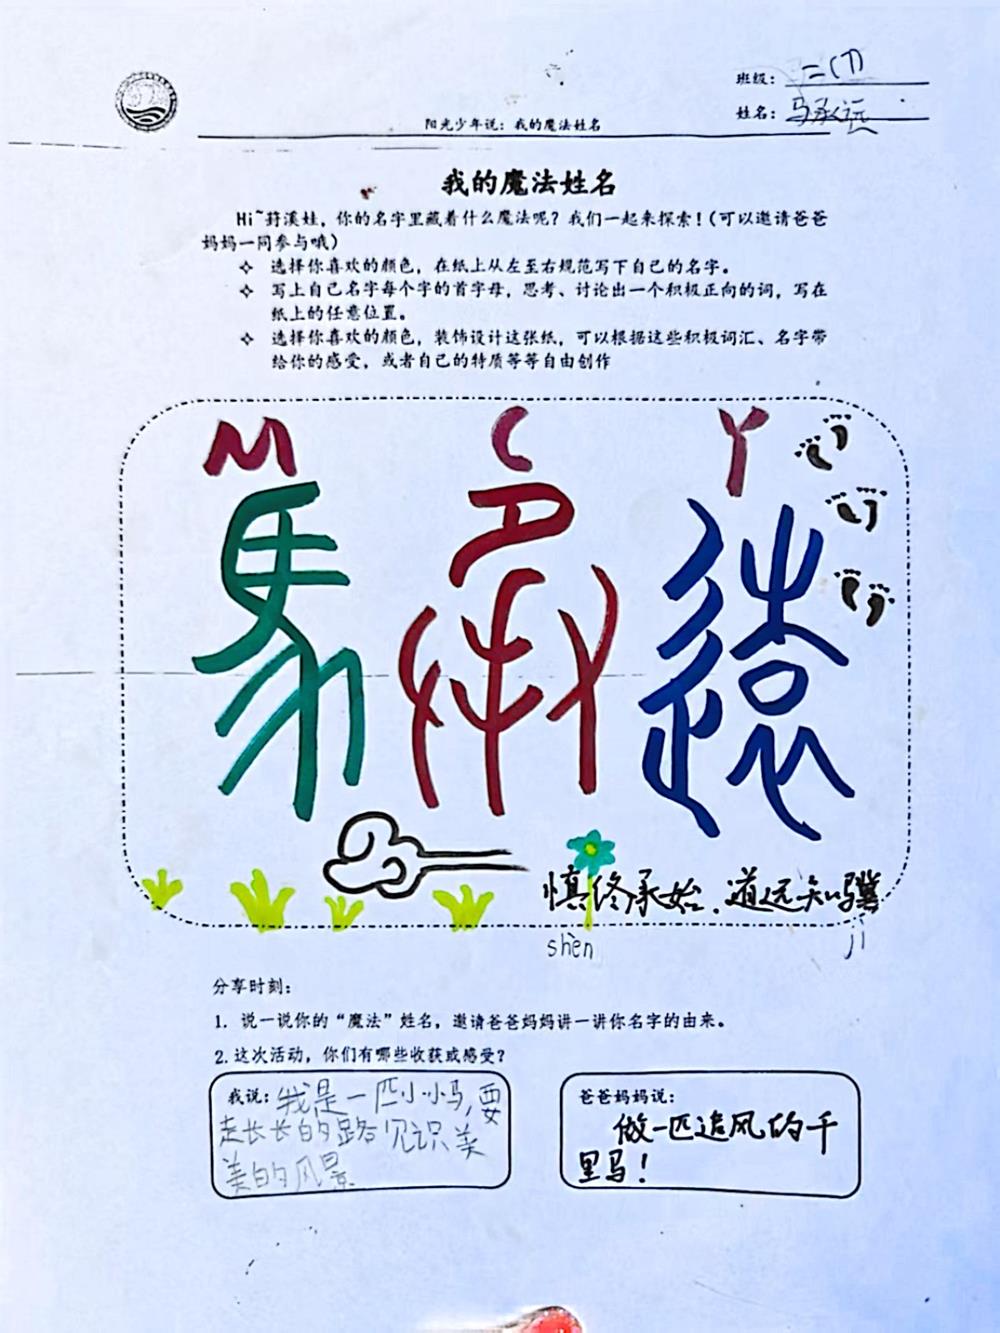 班级：二(7)
姓名：马承远
阳光少年说：我的魔法姓名
我的魔法姓名
Hi~荮溪娃，你的名字里藏着什么魔法呢？我们一起来探索！（可以邀请爸爸
妈妈一同参与哦）
✧ 选择你喜欢的颜色，在纸上从左至右规范写下自己的名字。
✧ 写上自己名字每个字的首字母，思考、讨论出一个积极正向的词，写在
纸上的任意位置。
✧ 选择你喜欢的颜色，装饰设计这张纸，可以根据这些积极词汇、名字带
给你的感受，或者自己的特质等等自由创作
M C Y
馬承遠
慎终承始．道远知骥
shèn jì
分享时刻：
1. 说一说你的“魔法”姓名，邀请爸爸妈妈讲一讲你名字的由来。
2.这次活动，你们有哪些收获或感受？
我说：我是一匹小小马，要
走长长的路 见识美
美的风景
爸爸妈妈说：
做一匹追风的千
里马！